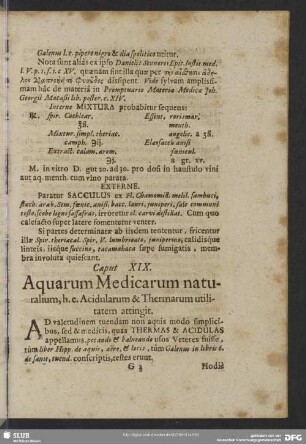 Galenus l. c. pipere nigro & dia spolitico utitur.
Nota sunt alias ex ipso Danielis Sennerti Epit. Instit. med.
l. V. p. 1. s. 1. c. XV. quænam sint illa quæ per
dissipent. Vide sylvam amplissi-
mam hâc de materiâ in Promptuario Materiæ Medicæ Joh.
Georgii Macasii lib. poster. c. XIV.
Internè MIXTURA probabitur sequens:
℞. spir. Cochlear.
Essent. rorismar.
menth.
Mixtur. simpl. theriac.
angelic. a
camph.
Elæosacch. anisi
Extract. calam. arom.
fœnicul.
a gr. xv.
M. in vitro D. gut 20. ad 30. pro dosi in haustulo vini
aut aq. menth. cum vino parata.
EXTERNE.
Paratur SACCULUS ex fl. Chamomill. melil. sambuci,
stœch. arab. Sem. fœnic. anisi, bacc. lauri, juniperi, sale communi
tosto, scobe ligni sassafras, irroretur ol. carvi destillat. Cum quo
calefacto super latere fomentetur venter.
Si partes determinatæ ab iisdem tententur, fricentur
illæ Spir. theriacal. Spir. V. lumbricato, juniperino, calidisque
linteis, iisque succino, tacamahaca sæpe fumigatis, mem-
bra involuta quiescant.
Caput XIX.
Aquarum Medicarum natu-
ralium, h. e. Acidularum & Thermarum utili-
tatem attingit.
AD valetudinem tuendam non aquis modo simplici-
bus, sed & medicis, quas THERMAS & ACIDULAS
appellamus, potando & balneando usos Veteres fuisse,
tùm liber Hipp. de aquis, aëre, & locis, tùm Galenus in libris 6.
de sanit. tuend. conscriptis, testes erunt.
G 3
Hodiè
SLUB
DFG